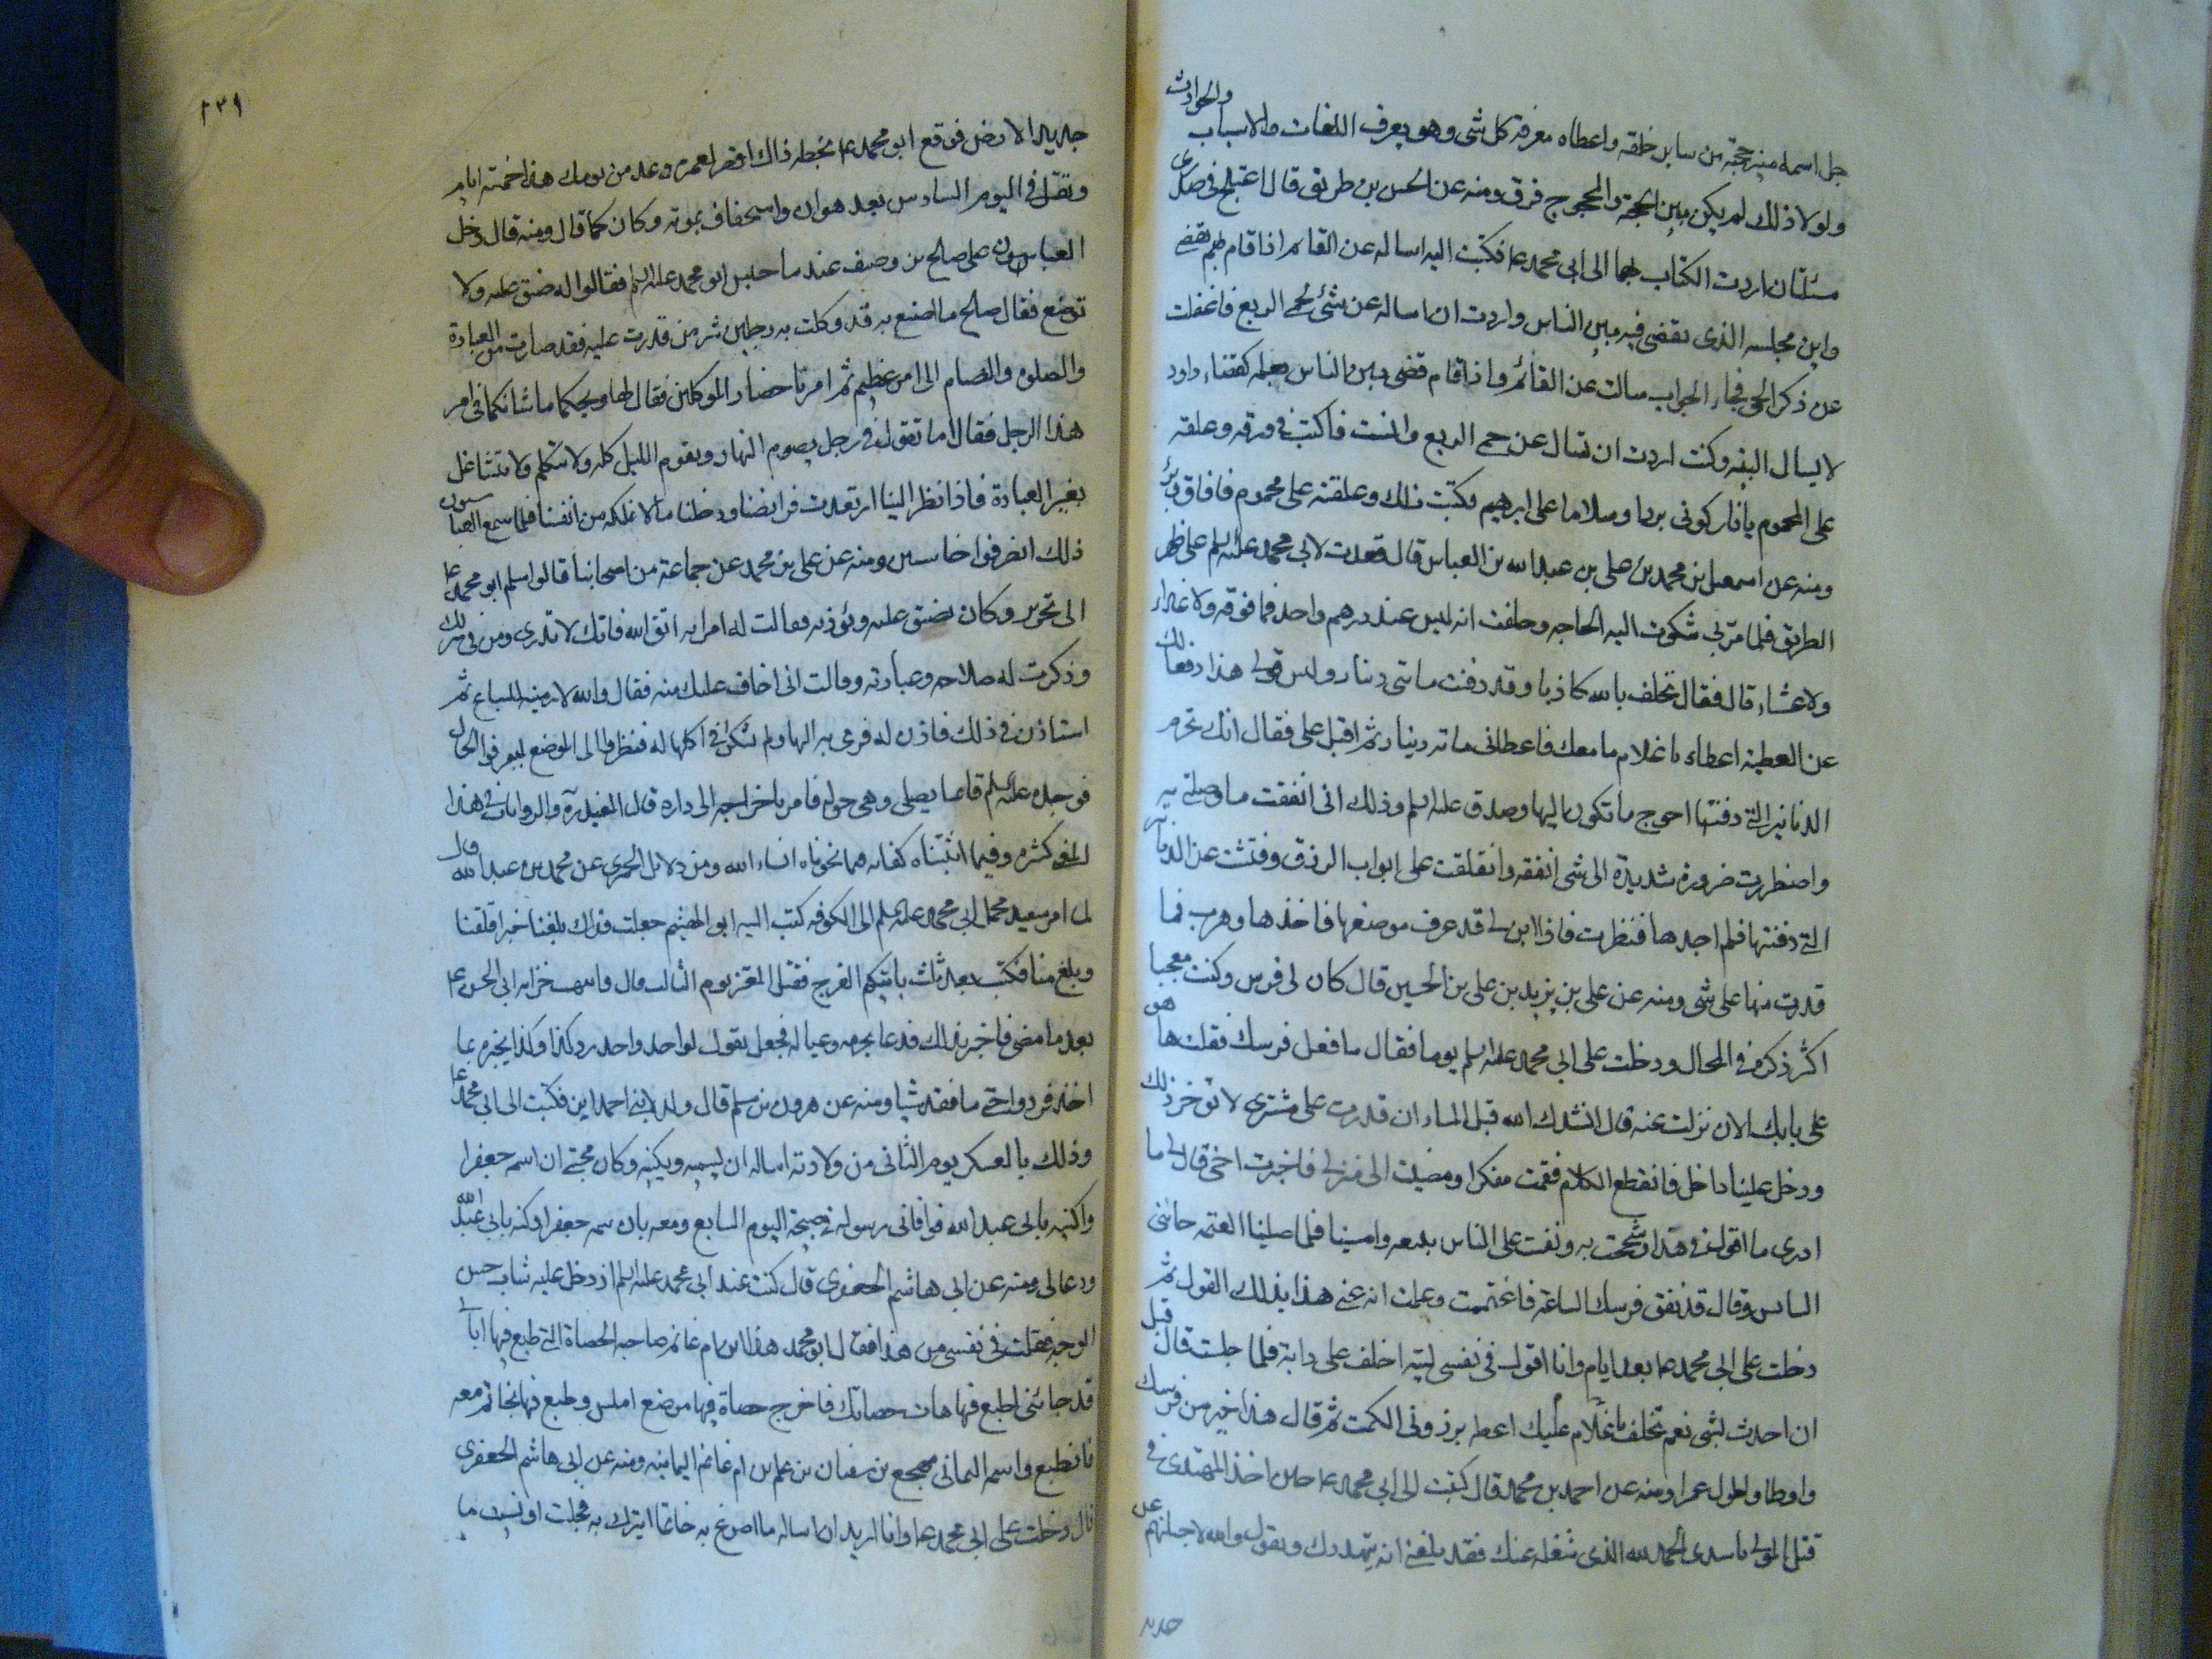 جل اسمه ميز حجته من ساير خلقه واعطاه معرفة كل شى وهو يعرف اللغات والاسباب والحوادث
ولولا ذلك لم يكن بين الحجة والمحجوج فرق ومنه عن الحسن بن طريق قال اعتلج فى صدرى
مسئلتان اردت الكتاب بهما الى ابى محمد عا فكتبت اليه اساله عن القائم اذا قام بم يقضى
واين مجلسه الذى يقضى فيه بين الناس واردت ان اساله عن شئ لحمى الربع فاغفلت
عن ذكر الحمى فجاء الجواب سالت عن القائم واذا قام قضى بين الناس بعلمه كقضاء داود
لا يسال البينه وكنت اردت ان تسال عن حمى الربع وانسيت فاكتب فى ورقه وعلقه
على المحموم يا نار كونى بردا وسلاما على ابرهيم فكتبت ذلك وعلقته على محموم فافاق وبرئ
ومنه عن اسمعيل بن محمد بن على بن عبد الله بن العباس قال قعدت لابى محمد عليه السلم على ظهر
الطريق فلما مر بى شكوت اليه الحاجه وحلفت انه ليس عند درهم واحد فما فوقه ولا غداء
ولا عشاء قال فقال تحلف بالله كاذبا وقد دفنت مائتى دينار وليس قولى هذا دفعا لك
عن العطية اعطه يا غلام ما معك فاعطانى مائه دينار ثم اقبل على فقال انك تحرم
الدنانير التى دفنتها احوج ما تكون اليها وصدق عليه السلم وذلك انى انفقت ما وصلنى به
واضطررت ضرورة شديدة الى شى انفقه وانغلقت على ابواب الرزق وفتشت عن الدنانير
التى دفنتها فلم اجدها فنظرت فاذا ابن لى قد عرف موضعها فاخذها وهرب فما
قدرت منها على شى ومنه عن على بن يزيد بن على بن الحسين قال كان لى فرس وكنت معجبا
اكثر ذكره فى المحال ودخلت على ابى محمد عليه السلم يوما فقال ما فعل فرسك فقلت ها هو
على بابك الان نزلت عنه قال انشدك الله قبل المساء ان قدرت على مشترى لا توخر ذلك
ودخل علينا داخل فانقطع الكلام فقمت مفكرا ومضيت الى منزلى فاخبرت اخى قال لى ما
ادرى ما اقول فى هذا وشححت به ونفست على الناس ببيعه وامسينا فلما صلينا العتمه جائنى
السايس وقال قد نفق فرسك الساعة فاغتممت وعلمت انه عنى هذا بذلك القول ثم
دخلت على ابى محمد عا بعد ايام وانا اقول فى نفسى ليته اخلف على دابة فلما جلست قال قبل
ان احدث بشى نعم نخلف يا غلام عليك اعطه برذونى الكميت ثم قال هذا خير من فرسك
واوطا واطول عمرا ومنه عن احمد بن محمد قال كتبت الى ابى محمد عا حين اخذ المهتدى فى
قتل الموالى يا سيدى الحمد لله الذى شغله عنك فقد بلغنى انه يتهددك ويقول والله لاجلينهم عن
جديد
٢٣١
جديد الارض فوقع ابو محمد عا بخطه ذاك اقصر لعمره وعد من يومك هذا خمسة ايام
ويقتل فى اليوم السادس بعد هوان واستخفاف بموته وكان كما قال ومنه قال دخل
العباسيون على صالح بن وصيف عند ما حبس ابو محمد عليه السلم فقالوا له ضيق عليه ولا
توسع فقال صالح ما اصنع به قد وكلت به رجلين شر من قدرت عليه فقد صارا من العبادة
والصلوه والصيام الى امر عظيم ثم امر باحضار الموكلين فقال لهما ويحكما ما شانكما فى امر
هذا الرجل فقالا ما تقول فى رجل يصوم النهار ويقوم الليل كله ولا يتكلم ولا يتشاغل
بغير العبادة فاذا نظر الينا ارتعدت فرائصنا ودخلنا ما لا نملكه من انفسنا فلما سمع العباسيون
ذلك انصرفوا خاسئين ومنه عن على بن محمد عن جماعة من اصحابنا قالوا سلم ابو محمد عا
الى نحرير وكان يضيق عليه ويؤذيه فقالت له امراته اتق الله فانك لا تدرى ومن فى منزلك
وذكرت له صلاحه وعبادته وقالت انى اخاف عليك منه فقال والله لارمينه للسباع ثم
استاذن فى ذلك فاذن له فرمى به اليها ولم يشكوا فى اكلها له فنظروا الى الموضع ليعرفوا الحال
فوجدوه عليه السلم قائما يصلى وهى حوله فامر باخراجه الى داره قال المفيد ره والروايات فى هذا
المعنى كثيره وفيما اثبتناه كفايه فيما نحوناه انشاء الله ومن دلائل الحميرى عن محمد بن عبد الله قال
لما امر سعيد بحمل ابى محمد عليه السلم الى الكوفه كتب اليه ابو الهيثم جعلت فداك بلغنا خبر اقلقنا
وبلغ منا فكتب بعد ثلث ياتيكم الفرج فقتل المعتز يوم الثالث قال وانتهب خزانه ابى الحسن عا
بعد ما مضى فاخبر بذلك فدعا بحرمه وعياله فجعل يقول لواحد واحد رد كذا وكذا يخبرهم بما
اخذ فردوا حتى ما فقد شيا ومنه عن هرون بن مسلم قال ولد لابنى احمد ابن فكتبت الى ابى محمد عا
وذلك بالعسكر يوم الثانى من ولادته اساله ان يسميه ويكنيه وكان محبتى ان اسمه جعفرا
واكنيه بابى عبد الله فوافانى رسوله فى صبيحة اليوم السابع ومعه بان سمه جعفرا وكنه بابى عبد الله
ودعا لى ومنه عن ابى هاشم الجعفرى قال كنت عند ابى محمد عليه السلم اذ دخل عليه شاب حسن
الوجه فقلت فى نفسى من هذا فقال ابو محمد هذا ابن ام غانم صاحبه الحصاة التى طبع فيها ابائى
قد جائنى اطبع فيها هات حصاتك فاخرج حصاة فيها موضع املس وطبع فيها بخاتم معه
فانطبع واسم اليمانى مهجع بن سفيان بن علم ابن ام غانم اليمانيه ومنه عن ابى هاشم الجعفرى
قال دخلت على ابى محمد عا وانا اريد ان اساله ما اصوغ به خاتما اتبرك به فجلست وانسيت ما